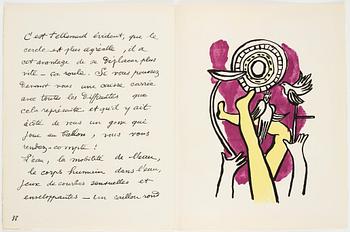 C'est tellement évident, que le
cercle est plus agréable, il a
cet avantage de se déplacer plus
vite — ça roule. Si vous poussez
devant vous une caisse carrée
avec toutes les difficultés que
cela représente et qu'il y ait
à côté de vous un gosse qui
joue au ballon, vous vous
rendez-compte!
l'eau, la mobilité de l'eau,
le corps humain dans l'eau,
jeux de courbes sensuelles et
enveloppantes — un caillou rond